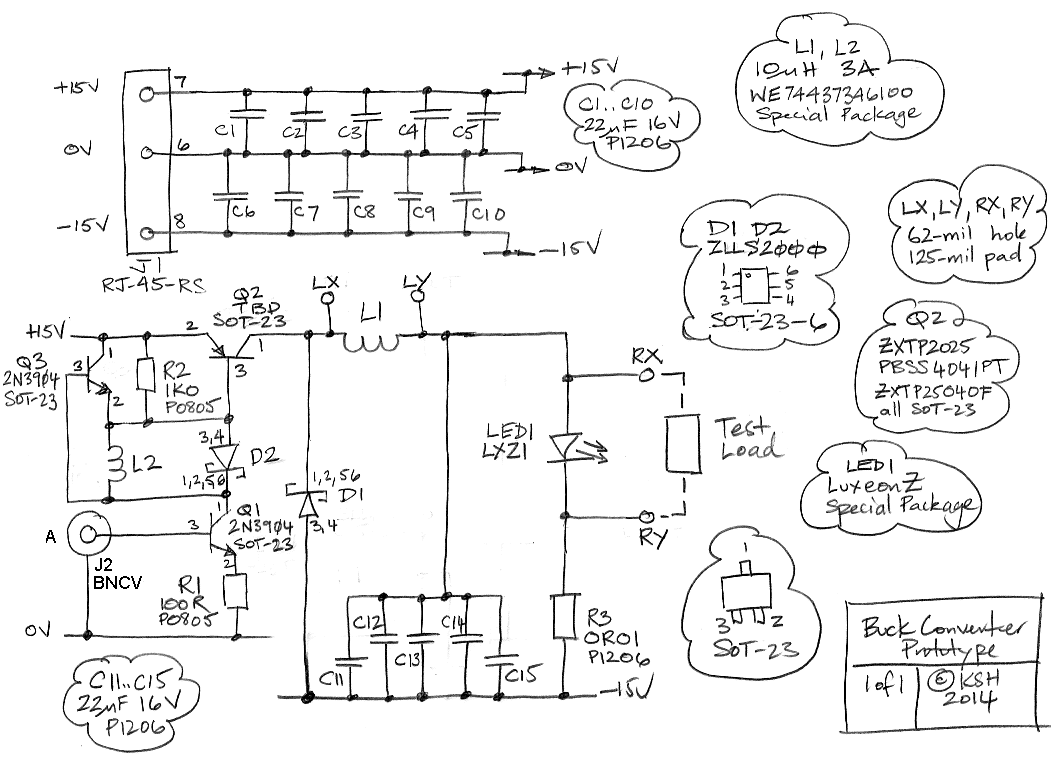 7
+15V
C1
C2
C3
C4
C5
+15V
6
0V
0V
C6
C7
C8
C9
C10
8
-15V
-15V
J1
RJ-45-RS
C1..C10
22uF 16V
P1206
L1, L2
10uH 3A
WE74437346100
Special Package
LX, LY, RX, RY
62-mil hole
125-mil pad
D1 D2
ZLLS2000
1 6
2 5
3 4
SOT-23-6
Q2
ZXTP2025
PBSS4041PT
ZXTP25040F
all SOT-23
LED1
Luxeon Z
Special Package
1
3 2
SOT-23
Q2
TBD
SOT-23
2
1
3
LX
LY
L1
+15V
Q3
2N3904
SOT-23
1
3
2
R2
1K0
P0805
L2
3,4
D2
1,2,56
Q1
2N3904
SOT-23
1
3
2
A
J2
BNCV
R1
100R
P0805
0V
1,2,56
D1
3,4
LED1
LXZ1
RX
RY
Test
Load
C11
C12
C13
C14
C15
R3
0R01
P1206
-15V
C11..C15
22uF 16V
P1206
Buck Converter
Prototype
1 of 1
© KSH
2014